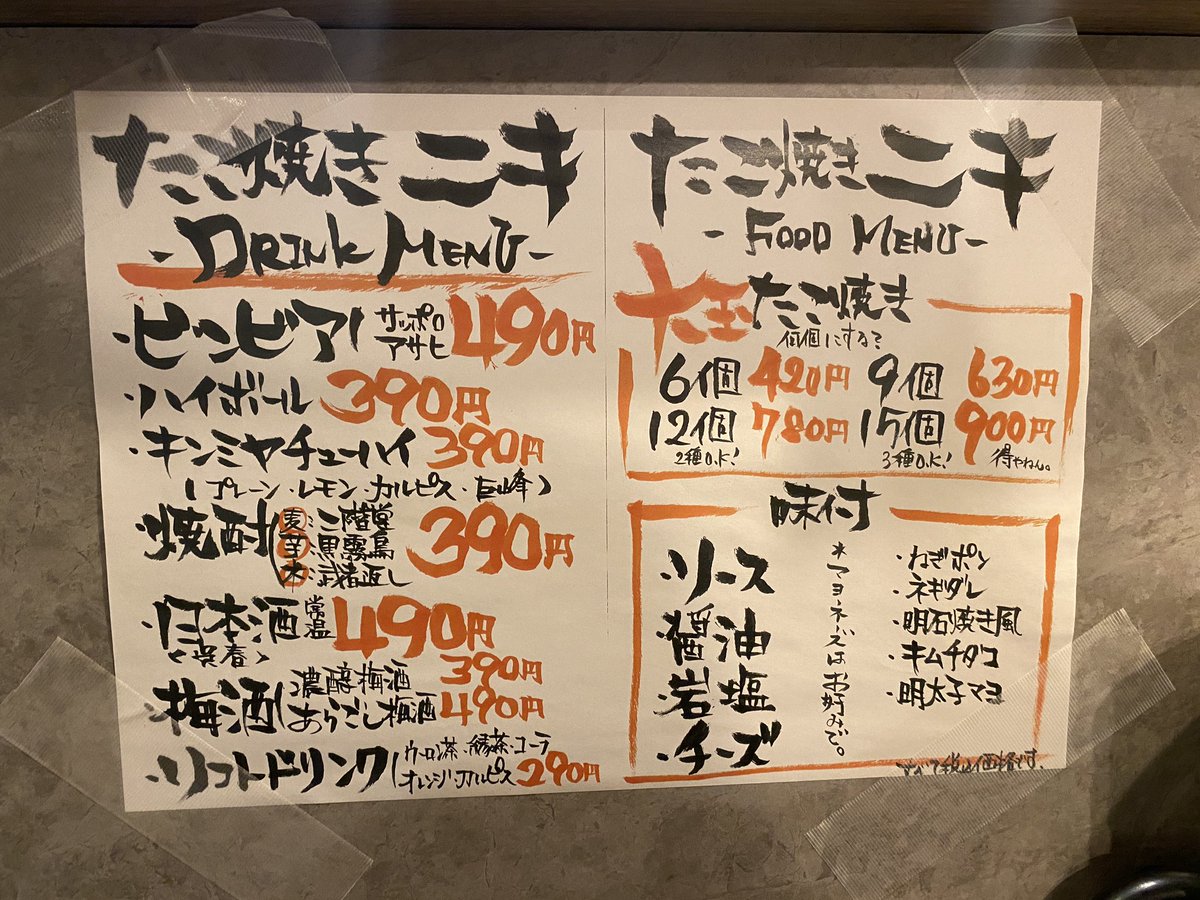 たこ焼き ニキ
- DRINK MENU -
・ビンビアー サッポロ アサヒ 490円
・ハイボール 390円
・キンミヤチューハイ 390円
(プレーン・レモン・カルピス・巨峰)
・焼酎 麦:二階堂 390円
芋:黒霧島
米:武者返し
・日本酒 常温 490円
(呉春)
・梅酒 濃醇梅酒 390円
あらごし梅酒 490円
・ソフトドリンク ウーロン茶・緑茶・コーラ
オレンジ・カルピス 290円
たこ焼き ニキ
- FOOD MENU -
大玉たこ焼き
何個にする?
6個 420円 9個 630円
12個 780円 15個 900円
2種O.K! 3種O.K! 得やねん。
味付
・ソース
・醤油
・岩塩
・チーズ
*マヨネーズはお好みで。
・ねぎポン
・ネギダレ
・明石焼き風
・キムチタコ
・明太子マヨ
すべて税込価格です。